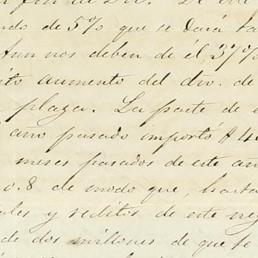 ndo de 5% que se dará ta
Aun nos deben de él 37%
to aumento del div. de
plaza. La parte de
ano pasado importó $ 4
meses pasados de este an
o. 8 de modo que, hasta
les y reditos de este neg
de dos millones de que te